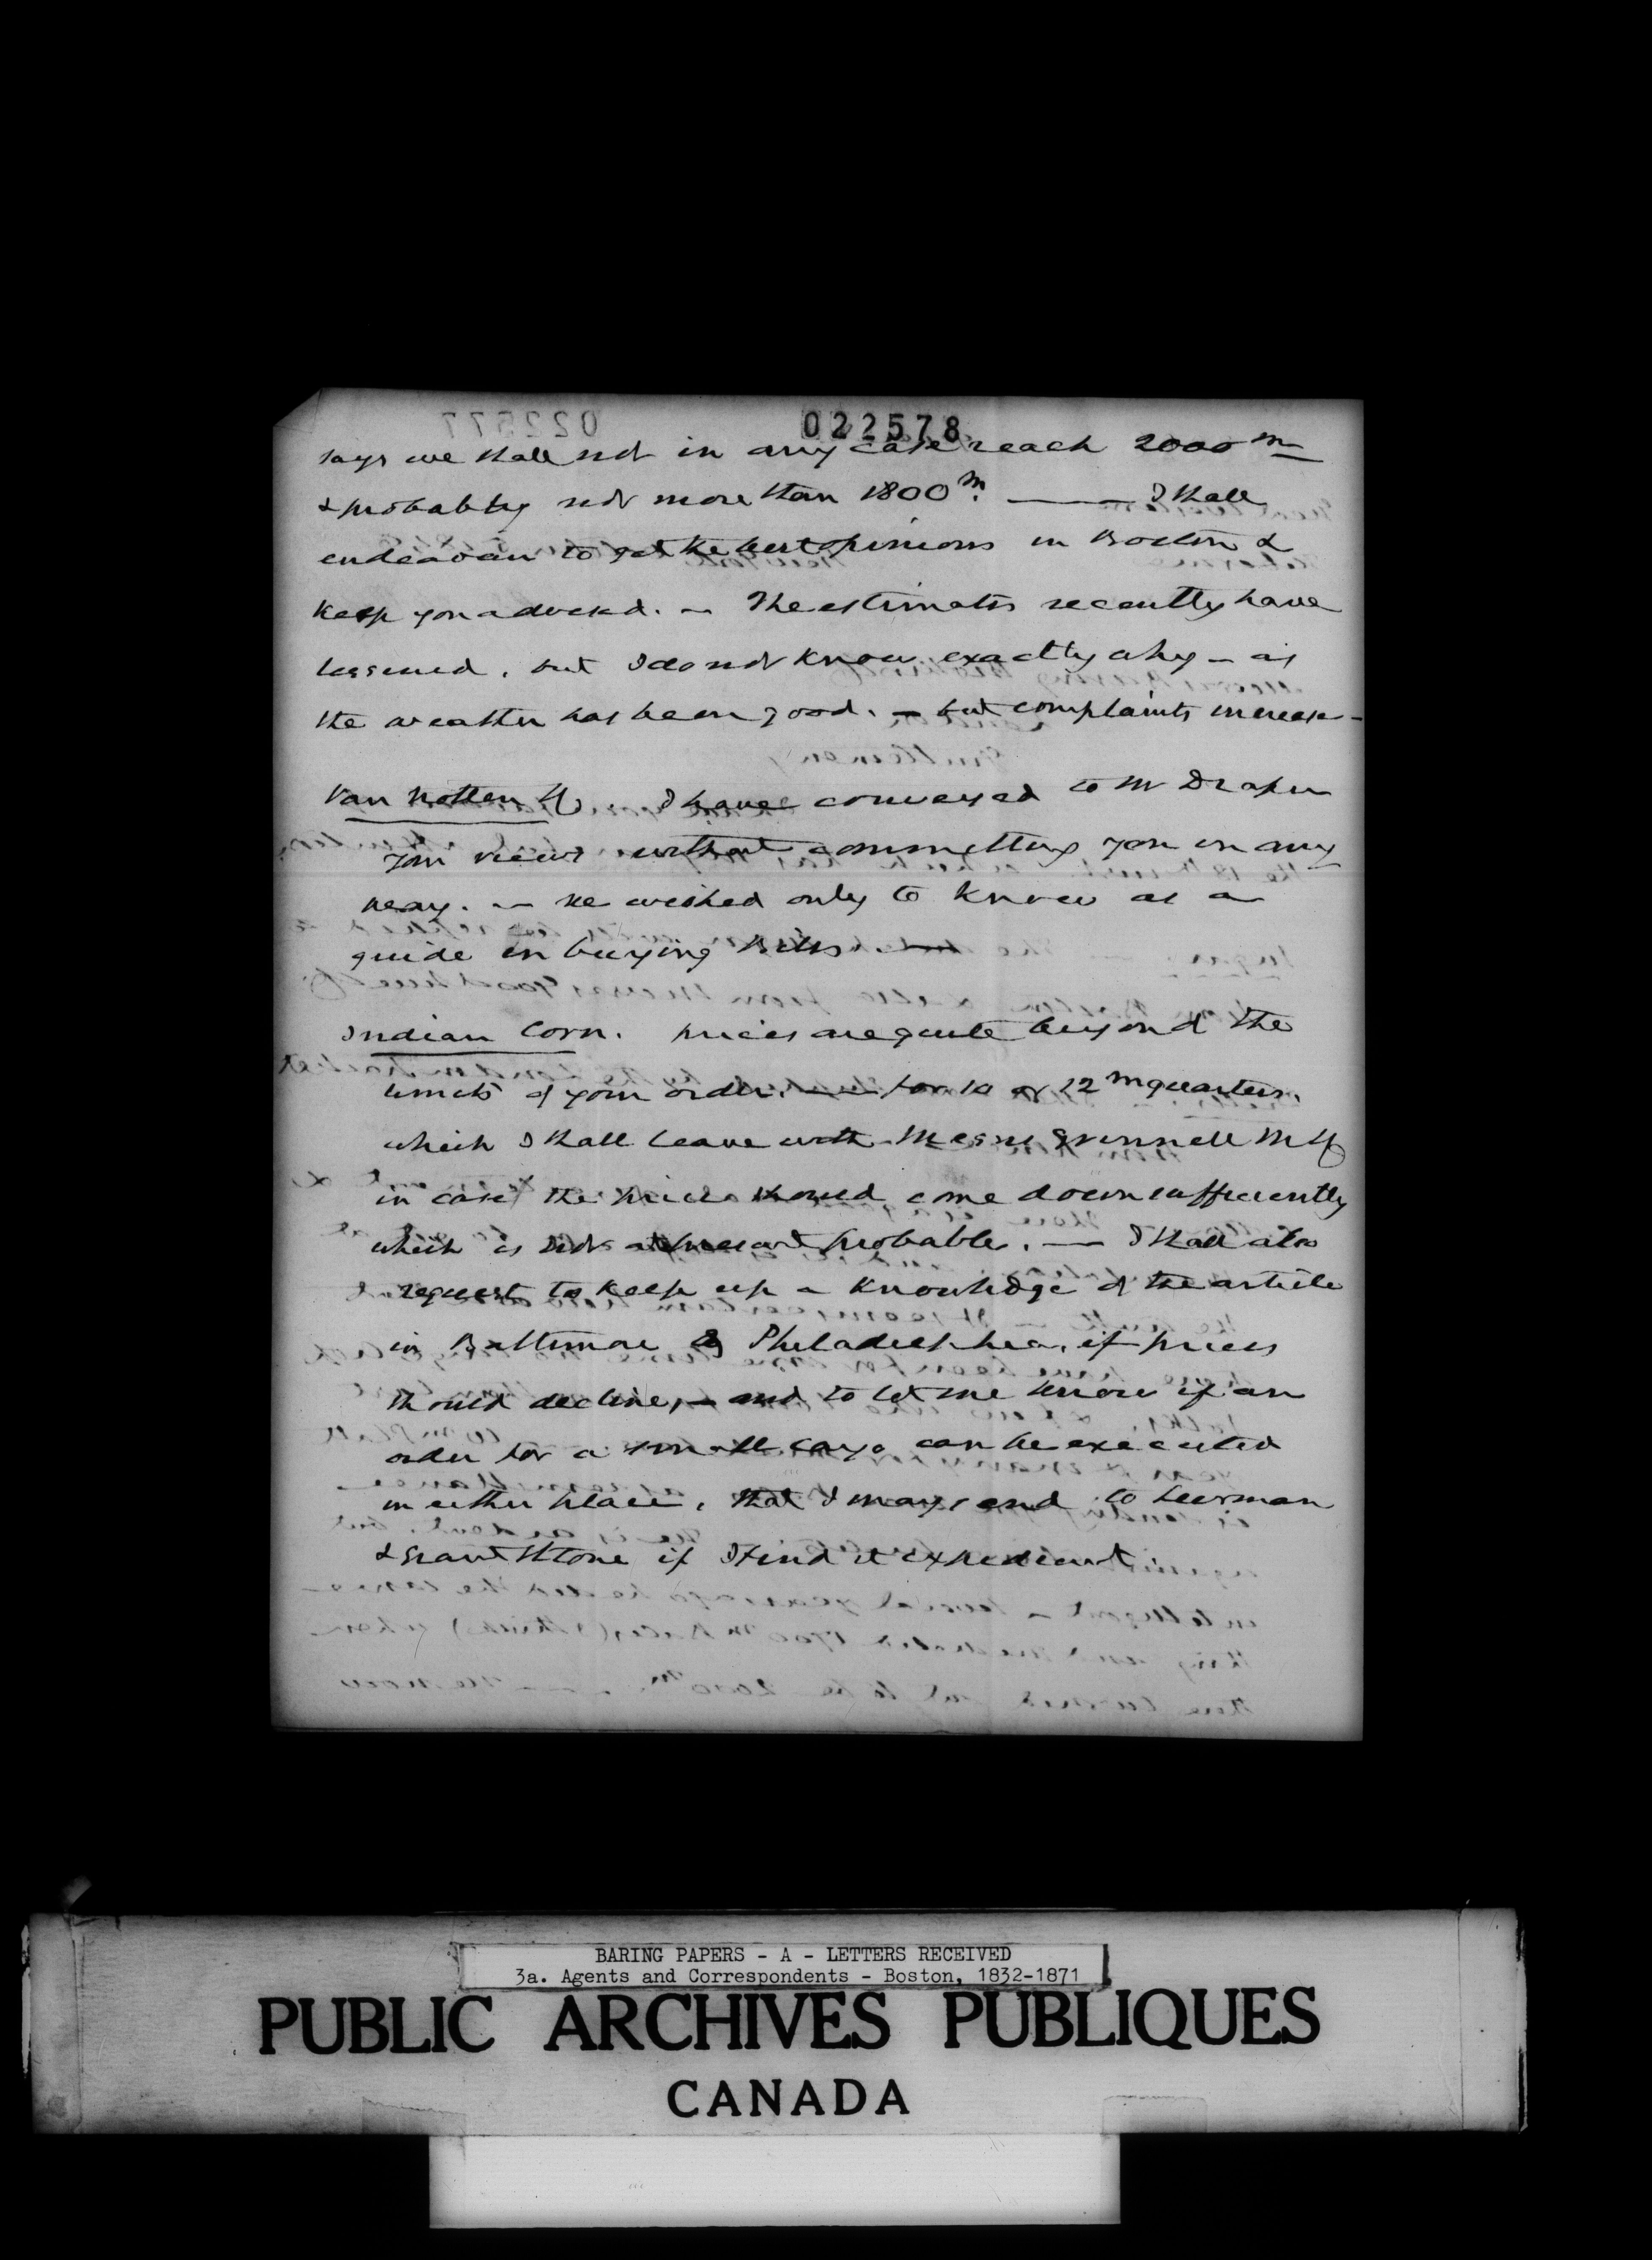 022578
says we shall not in any case reach 2000 m
& probably not more than 1800 m. — I shall
endeavour to get the best opinions in Boston &
keep you advised. — The estimates recently have
lessened, but I do not know exactly why — as
the weather has been good. — but complaints increase —
Van Notten & Co I have conveyed to Mr Draper
your views without committing you in any
way. — he wished only to know as a
guide in buying Bills. —
Indian Corn. prices are quite beyond the
limits of your order. — for 10 or 12 m quarters,
which I shall leave with Messrs Grinnell M & Co
in case the price should come down sufficiently
which is not at present probable. — I shall also
request to keep up a knowledge of the article
in Baltimore & Philadelphia, if prices
should decline, — and to let me know if an
order for a small cargo can be executed
in either place, that I may send to Leurman
& Grant & Stone if I find it expedient
BARING PAPERS - A - LETTERS RECEIVED
3a. Agents and Correspondents - Boston, 1832-1871
PUBLIC ARCHIVES PUBLIQUES
CANADA